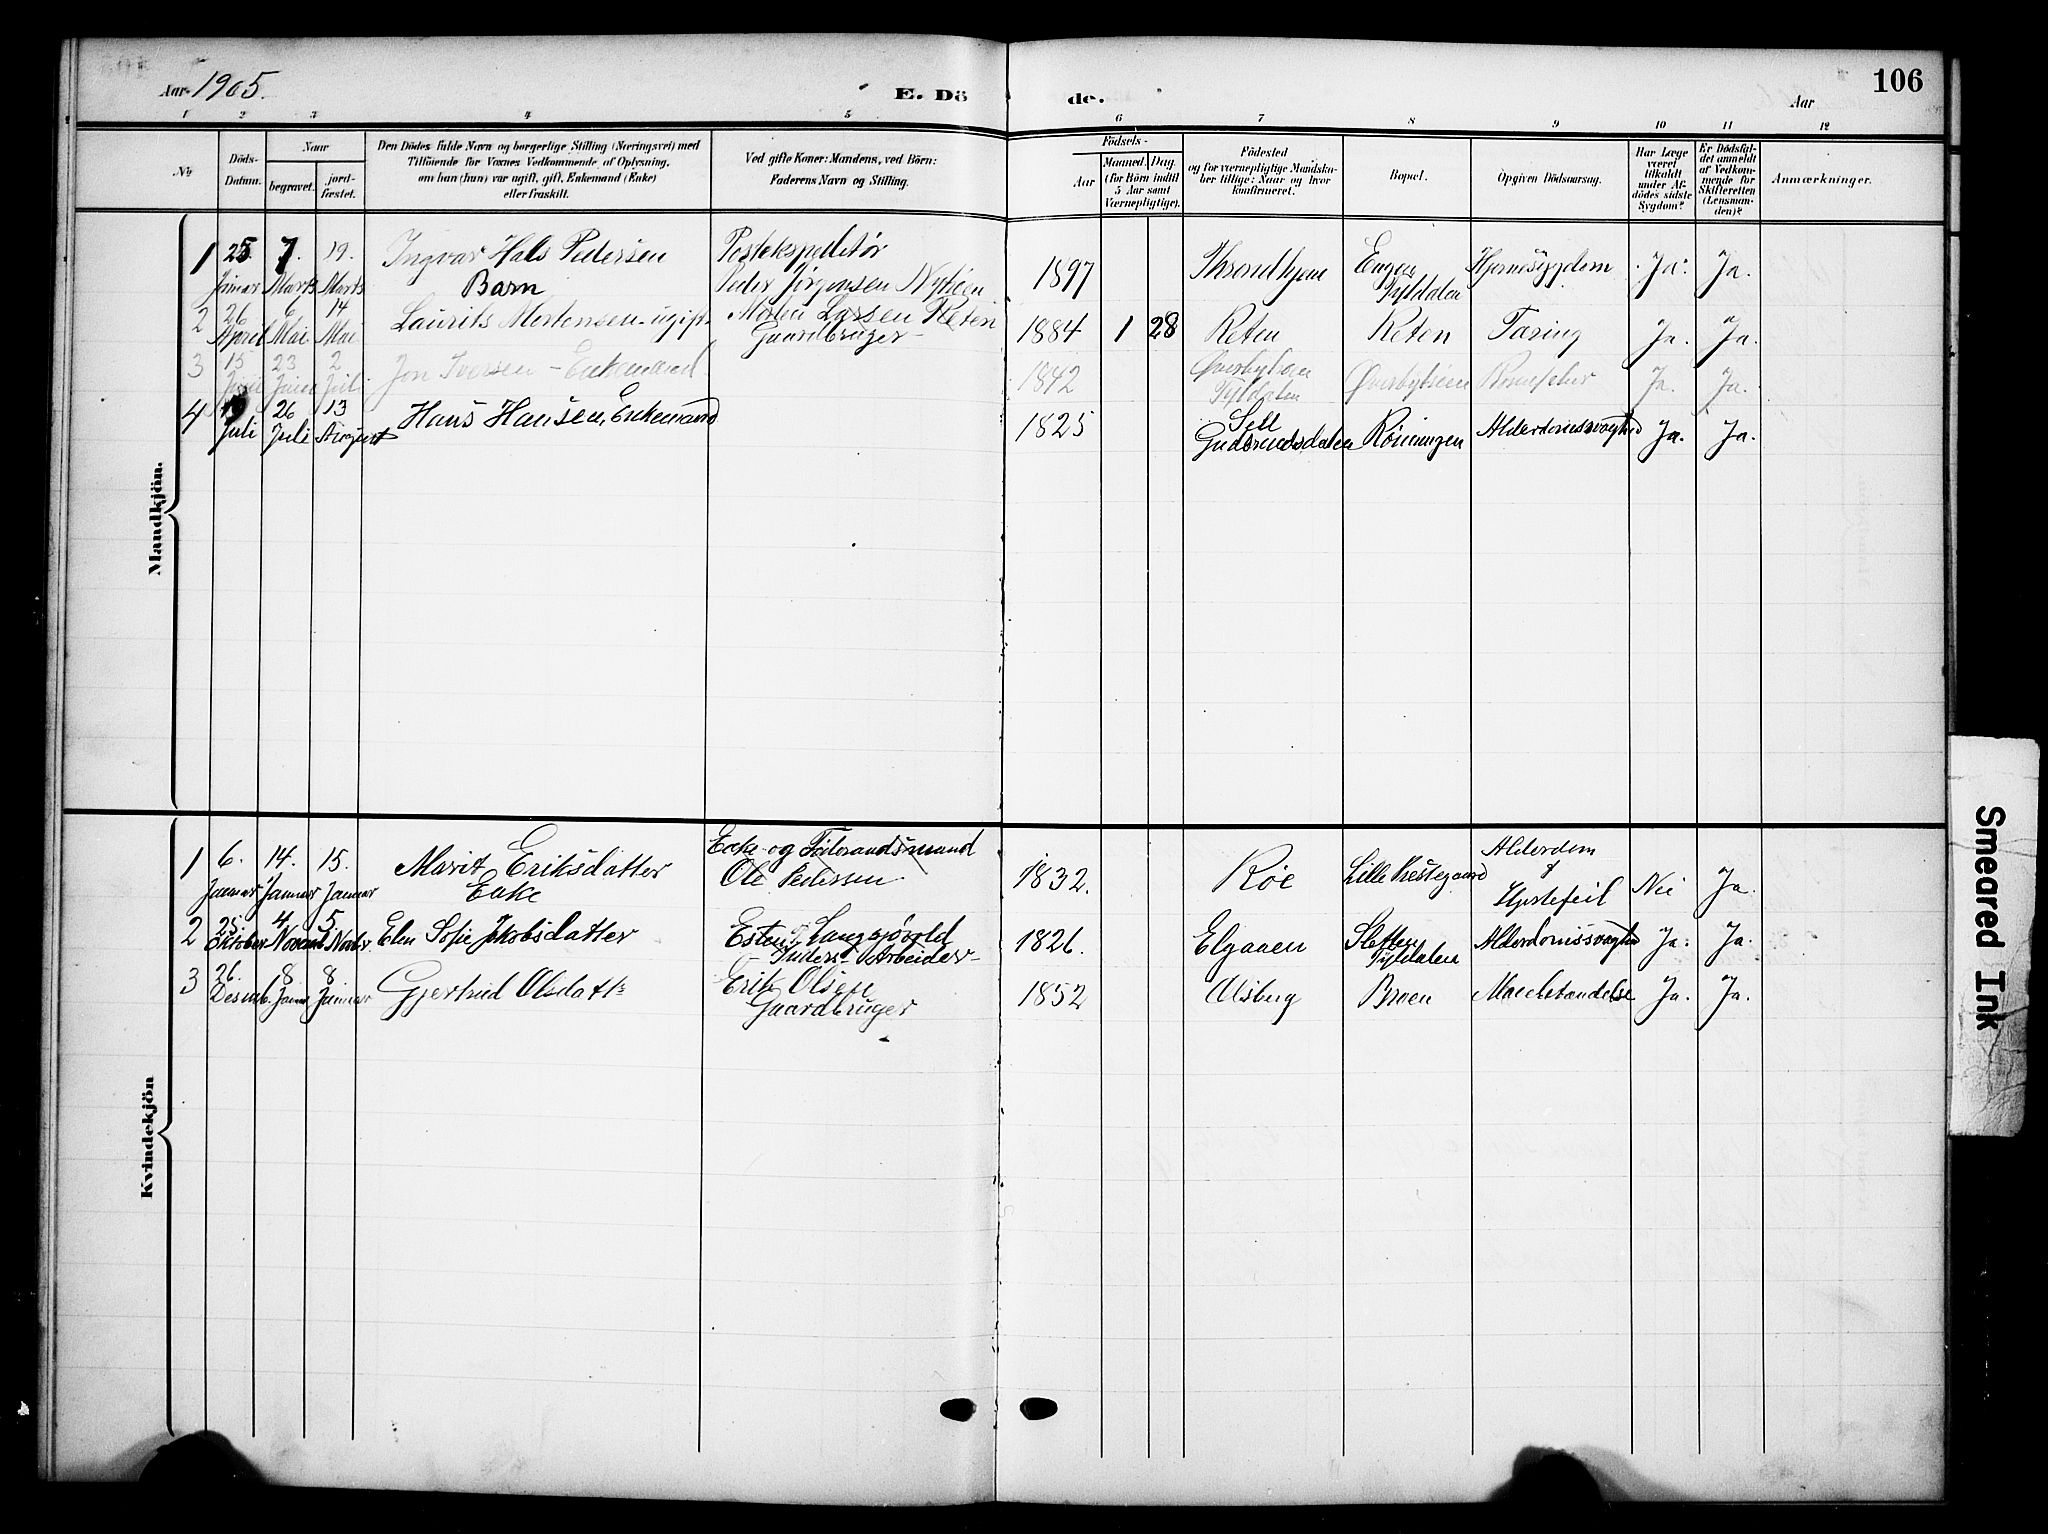 106
Aar 1905.
E. Dö de.
Aar
1 2 3 4 5 6 7 8 9 10 11 12
No
Döds-Datum.
Naar
begravet.
jordfæstet.
Den Dödes fulde Navn og borgerlige Stilling (Næringsvei) med
Tilföiende for Voxnes Vedkommende af Oplysning,
om han (hun) var ugift, gift, Enkemand (Enke)
eller fraskilt.
Ved gifte Koner: Mandens, ved Börn:
Faderens Navn og Stilling.
Födsels-
Aar
Maaned. Dag.
(for Börn indtil
5 Aar samt
Værnepligtige).
Födested
og for værnepligtige Mandska-
ber tillige: Naar og hvor
konfirmeret.
Bopæl.
Opgiven Dödsaarsag.
Har Læge
været
tilkaldt
under Af-
dödes sidste
Sygdom?
Er Dödsfal-
det anmeldt
af Vedkom-
mende for
Skifteretten
(Lensman-
den)?
Anmærkninger.
Mandkjön.
1 25 7. 19. Ingvar Hals Pedersen Postekspeditør 1897 Throndhjem Engen Hjernesygdom Ja. Ja.
Januar Marts Marts Barn Peder Jørgensen Tyldalen
2 26 6 14 Laurits Mortensen ugift Morten Larsen Reten 1884 1 28 Reten Reten Tæring Ja. Ja.
April Mai Mai Gaardbruger
3 15 23 2 Jon Iversen - Enkemand 1842 Øversbyløen Ja. Ja.
Juni Juni Juli Tyldalen
4 26 13 Hans Hansen, Enkemand 1825 Sell Rönningen Alderdomssvaghed Ja. Ja.
Juli Juli August Gudbrandsdalen
Kvindekjön
1 6. 14. 15. Marit Eriksdatter Enke og Föderaadsmand 1832. Røe Lille Prestegaard Alderdom Nei Ja.
Januar Januar Januar Enke Ole Pedersen & Hjertefeil
2 25. 4 5 Elen Sofie Jakobsdatter Esten 1826. Elgaaen Sletten Alderdomssvaghed Ja. Ja.
Oktober Novemb Novbr Arbeider Tyldalen
3 26. 8 8 Gjertrud Olsdattr Erik Olsen 1852 Alsberg Broen Ja. Ja.
Desemb. Januar Januar Gaardbruger
Smeared Ink